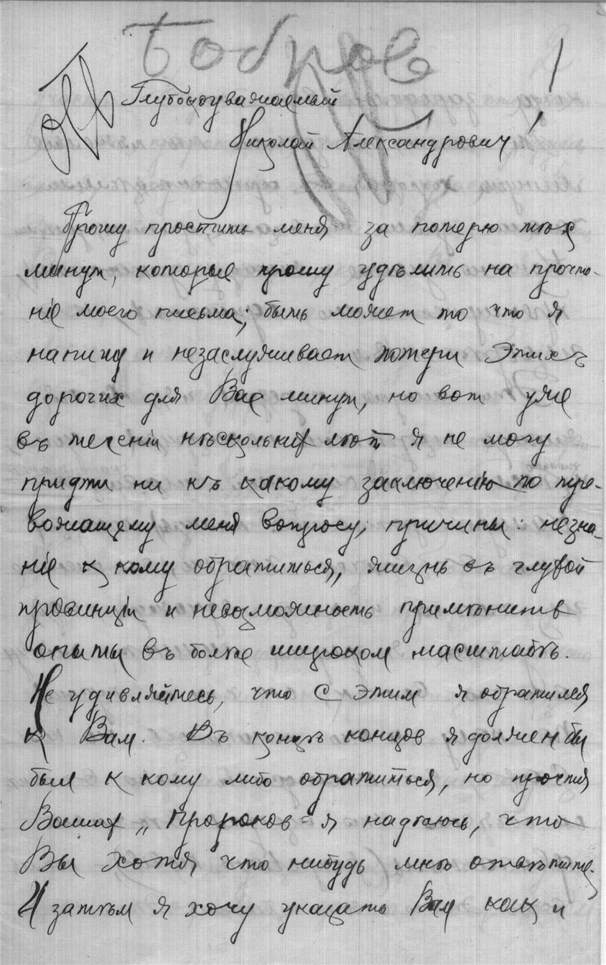 Бобров
Глубокоуважаемый
Николай Александрович!
Прошу простить меня за потерю тѣх
минут, которые прошу удѣлить на прочте-
ніе моего письма; быть может то что я
напишу и незаслуживает потери этихъ
дорогих для Вас минут, но вот уже
въ теченіи нѣсколько лѣт я не могу
придти ни къ какому заключенію по тре-
вожащему меня вопросу, причины: незна-
ніе к кому обратиться, жизнь въ глухой
провинціи и невозможность примѣнить
опыты въ болѣе широком масштабѣ.
Не удивляйтесь, что с этим я обратился
к Вам. Въ концѣ концов я должен бы
был к кому либо обратиться, но прочтя
Ваших „Пророков" я надѣюсь, что
Вы хотя что нибудь мнѣ отвѣтите.
И затѣм я хочу указать Вам как и